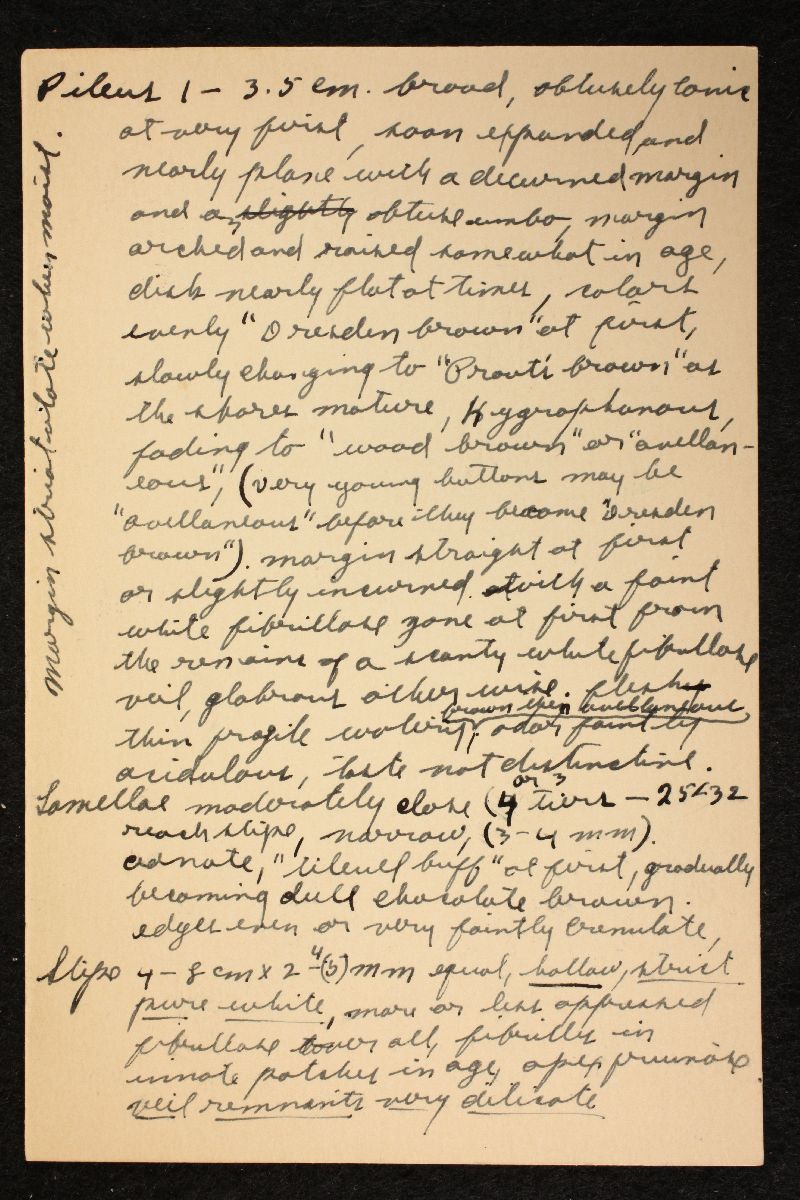 Pileus 1 - 3.5 cm. broad, obtusely conic
at very first, soon expanded, and
nearly plane with a decurved margin
and a slightly obtuse umbo, margin
arched and raised somewhat in age,
disk nearly flat at times, colors
evenly "Dresden brown" at first,
slowly changing to "Prout's brown" as
the spores mature, Hygrophanous,
fading to "wood brown" or "avellan-
eous", (very young buttons may be
"avellaneous" before they become "Dresden
brown"). margin straight at first
or slightly incurved with a faint
white fibrillose zone at first from
the remains of a scanty white fibrillose
veil, glabrous otherwise. flesh
brown then avellaneous
thin fragile watery, odor faintly
acidulous, taste not distinctive.
Lamellae moderately close (4 or 3 tiers - 25-32
reach stipe, narrow, (3-4 mm).
adnate, "tilleul buff" at first, gradually
becoming dull chocolate brown.
edges even or very faintly crenulate,
Stipe 4 - 8 cm x 2 - 4 (5) mm equal, hollow, strict
pure white, more or less appressed
fibrillose over all, fibrills in
innate patches in age, apex pruinose
veil remnants very delicate
Margin striatulate when moist.